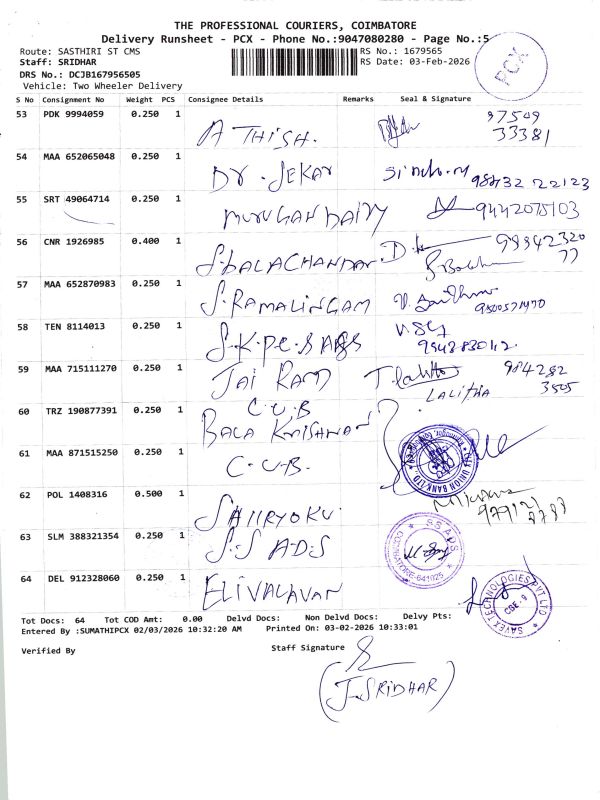 THE PROFESSIONAL COURIERS, COIMBATORE
Delivery Runsheet - PCX - Phone No.:9047080280 - Page No.:5
Route: SASTHIRI ST CMS
RS No.: 1679565
Staff: SRIDHAR
RS Date: 03-Feb-2026
DRS No.: DCJB167956505
Vehicle: Two Wheeler Delivery
PCX
S No Consignment No Weight PCS Consignee Details Remarks Seal & Signature
53 PDK 9994059 0.250 1 ATHISH. 97509
33381
54 MAA 652065048 0.250 1 DR. SEKAR
55 SRT 49064714 0.250 1 MURUGAN DAIRY
56 CNR 1926985 0.400 1 S.BALACHANDAR. 98842320
77
57 MAA 652870983 0.250 1 S.RAMALINGAM
58 TEN 8114013 0.250 1 S.K.P.C.S
59 MAA 715111270 0.250 1 JAI RAM T. Lalitha 984282
LALITHA 3505
C.U.B
60 TRZ 190877391 0.250 1 BALA KRISHNAN
61 MAA 871515250 0.250 1 C.U.B.
62 POL 1408316 0.500 1 SAIIRYOKU.
63 SLM 388321354 0.250 1 S.S ADS
S.S ADS
COIMBATORE-641025
64 DEL 912328060 0.250 1 ELIVALAVAN
SAVEX TECHNOLOGIES PVT LTD
Tot Docs: 64 Tot COD Amt: 0.00 Delvd Docs: Non Delvd Docs: Delvy Pts:
Entered By :SUMATHIPCX 02/03/2026 10:32:20 AM Printed On: 03-02-2026 10:33:01
Verified By Staff Signature
(J.SRIDHAR)